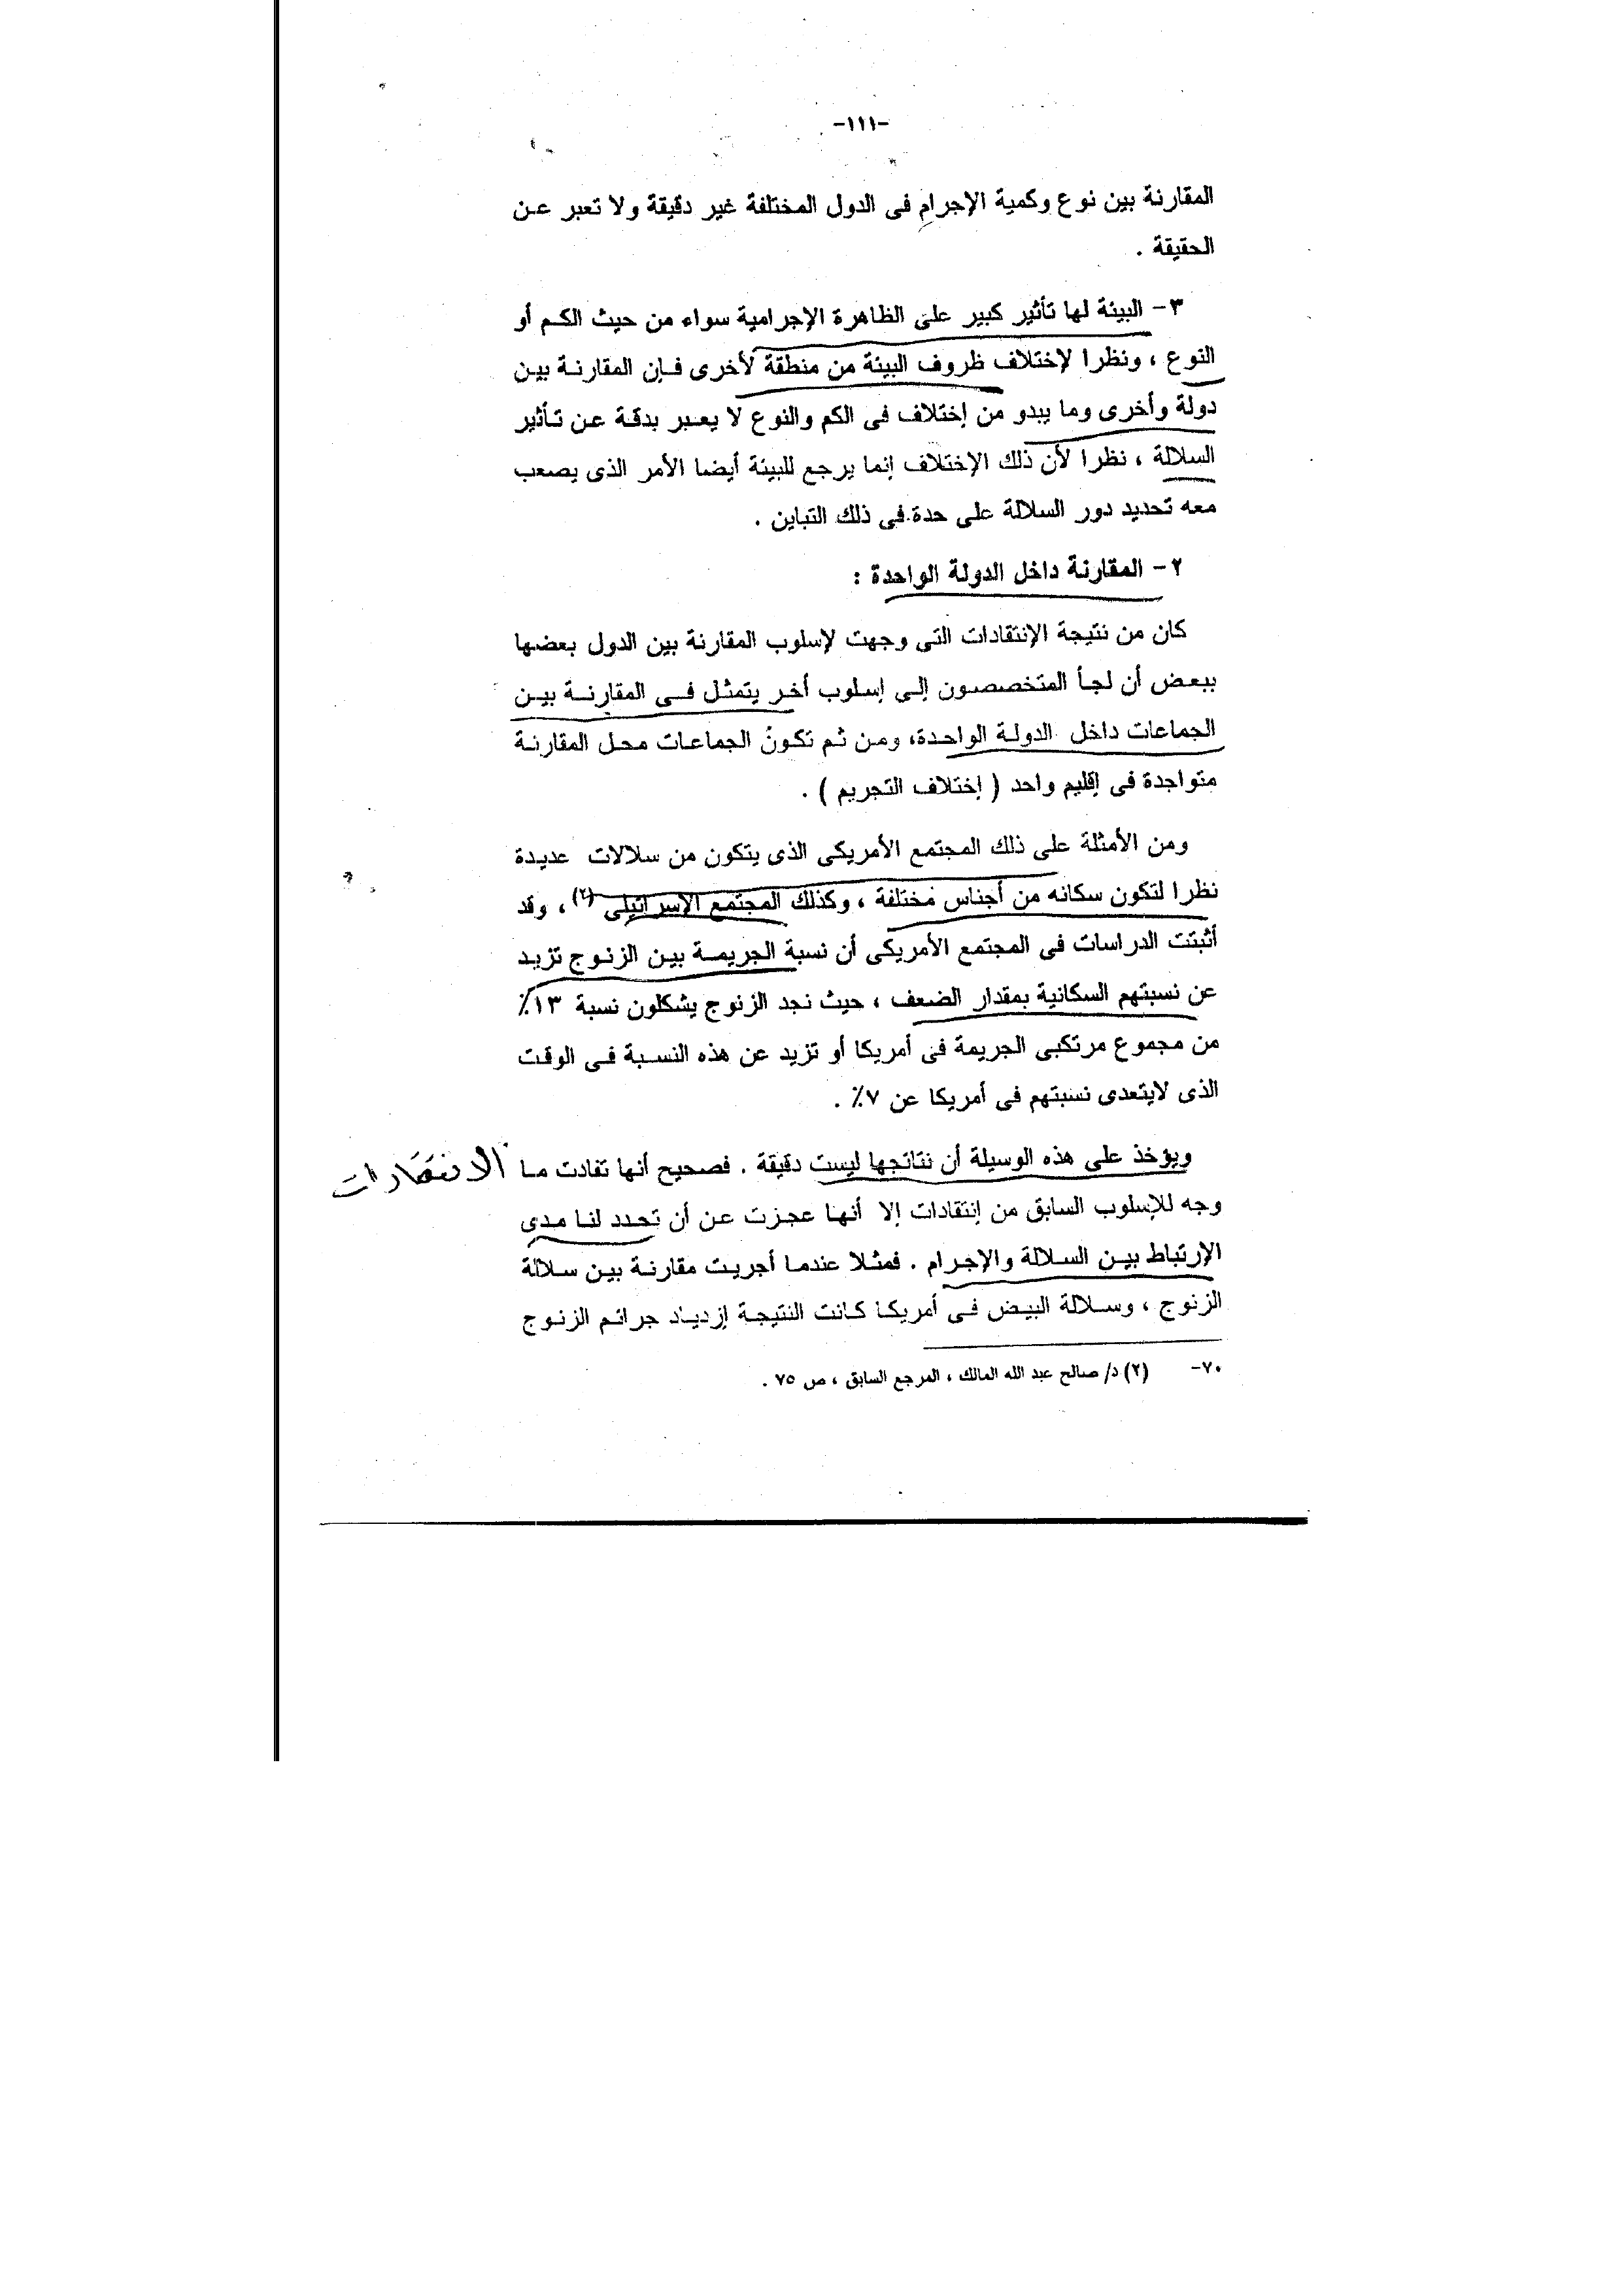 -١١١-
المقارنة بين نوع وكمية الإجرام فى الدول المختلفة غير دقيقة ولا تعبر عن
الحقيقة .
٣- البيئة لها تأثير كبير على الظاهرة الإجرامية سواء من حيث الكم أو
النوع ، ونظرا لإختلاف ظروف البيئة من منطقة لأخرى فإن المقارنة بين
دولة وأخرى وما يبدو من إختلاف فى الكم والنوع لا يعبر بدقة عن تأثير
السلالة ، نظرا لأن ذلك الإختلاف إنما يرجع للبيئة أيضا الأمر الذى يصعب
معه تحديد دور السلالة على حدة فى ذلك التباين .
٢- المقارنة داخل الدولة الواحدة :
كان من نتيجة الإنتقادات التى وجهت لإسلوب المقارنة بين الدول بعضها
ببعض أن لجأ المتخصصون إلى إسلوب أخر يتمثل فى المقارنة بين
الجماعات داخل الدولة الواحدة، ومن ثم تكون الجماعات محل المقارنة
متواجدة فى إقليم واحد ( إختلاف التجريم ) .
ومن الأمثلة على ذلك المجتمع الأمريكى الذى يتكون من سلالات عديدة
نظرا لتكون سكانه من أجناس مختلفة ، وكذلك المجتمع الإسرائيلى (٢) ، وقد
أثبتت الدراسات فى المجتمع الأمريكى أن نسبة الجريمة بين الزنوج تزيد
عن نسبتهم السكانية بمقدار الضعف ، حيث نجد الزنوج يشكلون نسبة ١٣٪
من مجموع مرتكبى الجريمة فى أمريكا أو تزيد عن هذه النسبة فى الوقت
الذى لايتعدى نسبتهم فى أمريكا عن ٧٪ .
ويؤخذ على هذه الوسيلة أن نتائجها ليست دقيقة . فصحيح أنها تفادت ما
الانتقادات
وجه للإسلوب السابق من إنتقادات إلا أنها عجزت عن أن تحدد لنا مدى
الإرتباط بين السلالة والإجرام . فمثلا عندما أجريت مقارنة بين سلالة
الزنوج ، وسلالة البيض فى أمريكا كانت النتيجة إزدياد جرائم الزنوج
٧٠- (٢) د/ صالح عبد الله المالك ، المرجع السابق ، ص ٧٥ .